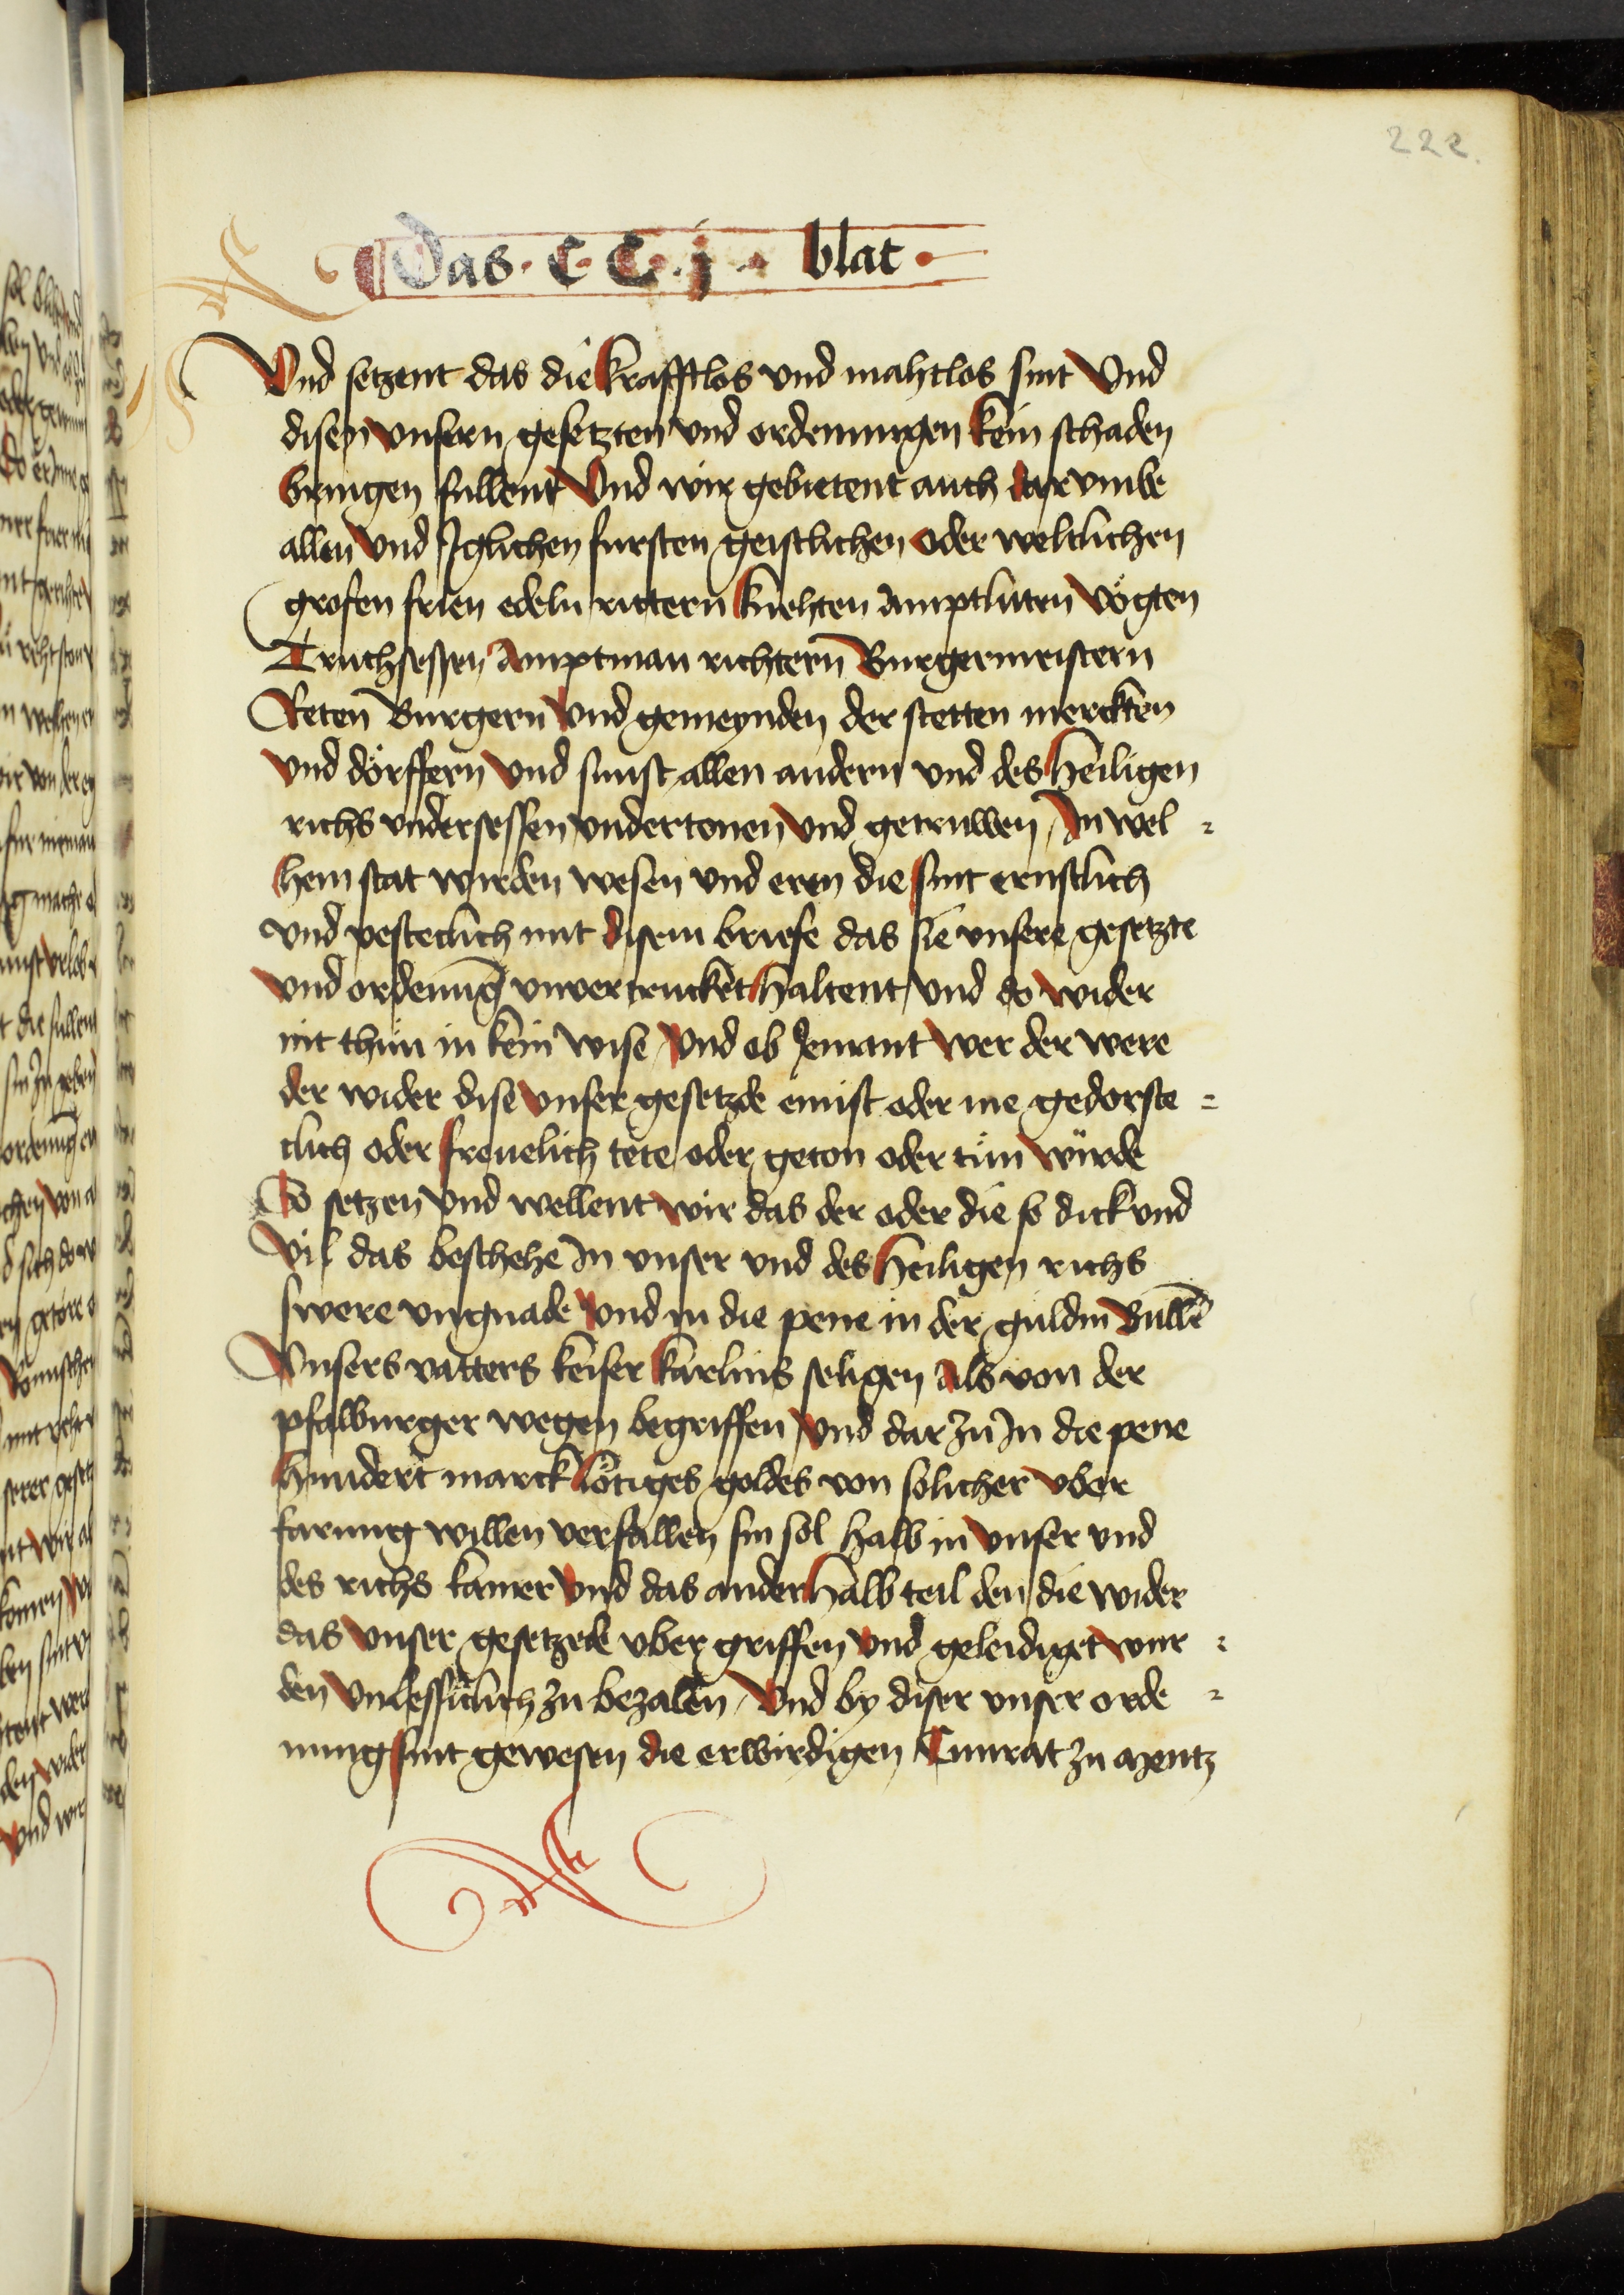 222.
Das · C · C · j · blat ·
Vnd setzent das die krafftlos vnd mahtlos sint Vnd
disen vnsern gesetzten vnd ordenungen kein schaden
bringen sullent Vnd wir gebietent auch dar vmbe
allen vnd Jglichen fursten geistlichen oder weltlichen
grofen frien edeln rittern knehten Amptluten Vögten
Truchsessen Amptman richtern Burgermeistern
Reten Burgern Vnd gemeynden der stetten merckten
vnd dörffern Vnd sunst allen andern vnd des heiligen
richs vndersessen vndertonen Vnd getruwen / Jn wel =
hem stat wirden wesen vnd eren die sint ernstlich
vnd vesteclich mit disem briefe das sie vnsere gesetzte
vnd ordenung vnvertrucket haltent / Vnd do wider
nit thun in kein wise / Vnd ob Jemant wer der were
der wider dise vnser gesetzde einist oder me gedorste =
clich oder freuelich tete oder geton oder tun würde
So setzen Vnd wellent wir das der oder die so dick vnd
vil das beschehe Jn vnser vnd des heiligen richs
swere vngnade Vnd in die pene in der guldin Bulle
Vnsers vatters keiser karlins seligen Als von der
pfalburger wegen begriffen / Vnd dar zu Jn die pene
hundert marck lötiges goldes von solicher vber
farung willen verfallen sin sol halb in vnser vnd
des richs kamer Vnd das ander halb teil den die wider
das vnser gesetzede vber griffen Vnd geleidiget wur =
den Vnlesslich zu bezalen / Vnd by diser vnser orde =
nung sint gewesen die erwirdigen Cunrat zu Mentz